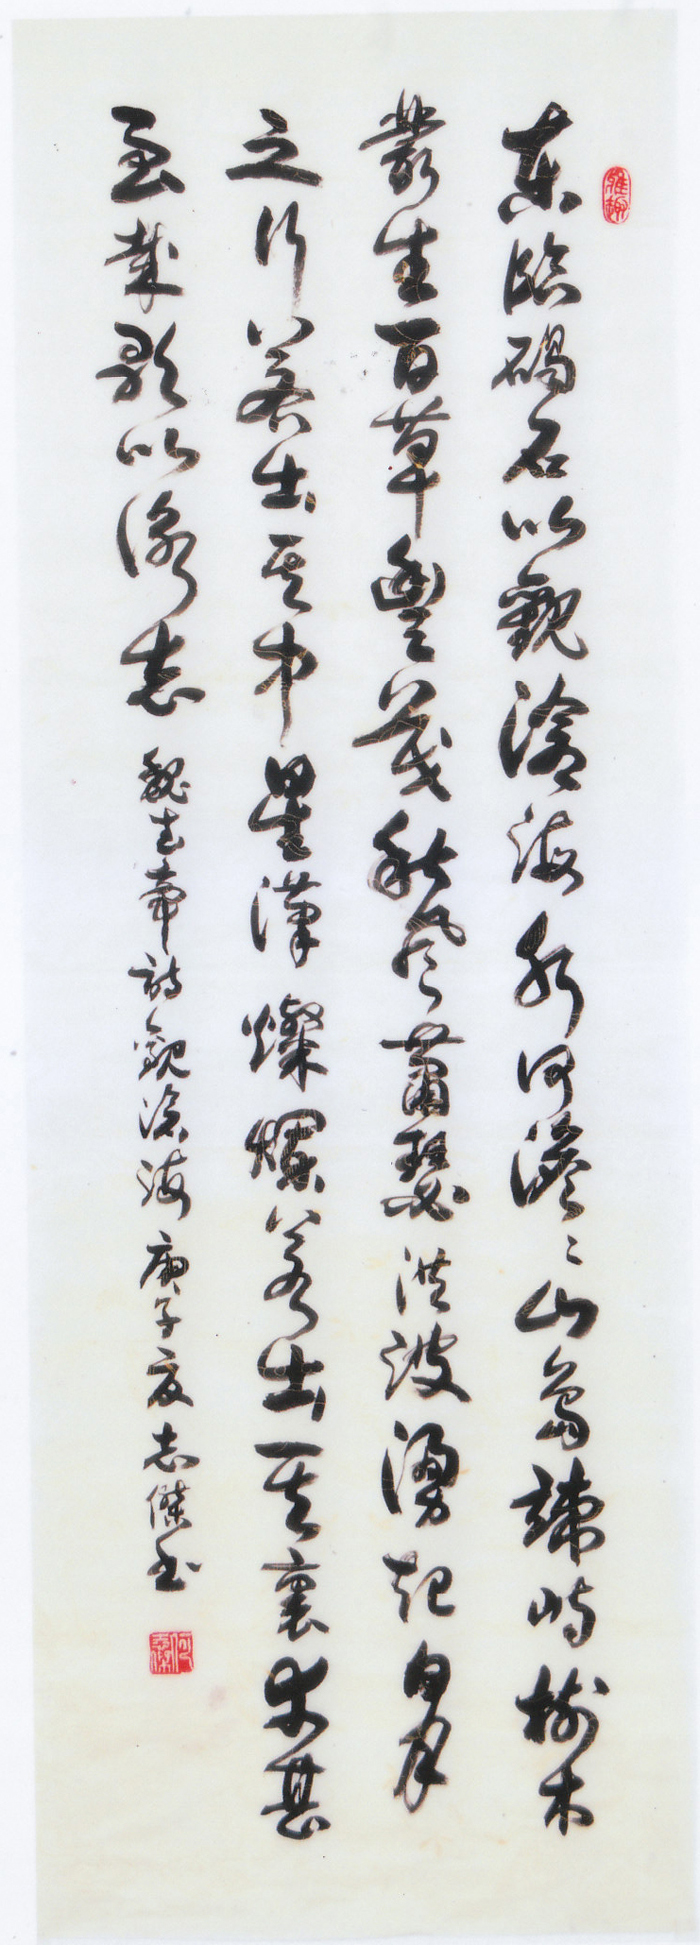 東臨碣石以觀滄海水何澹〻山島竦峙樹木
叢生百草豐茂秋風蕭瑟洪波湧起日月
之行若出其中星漢燦爛若出其裏幸甚
至哉歌以詠志 魏武帝詩觀滄海 庚子夏志傑書